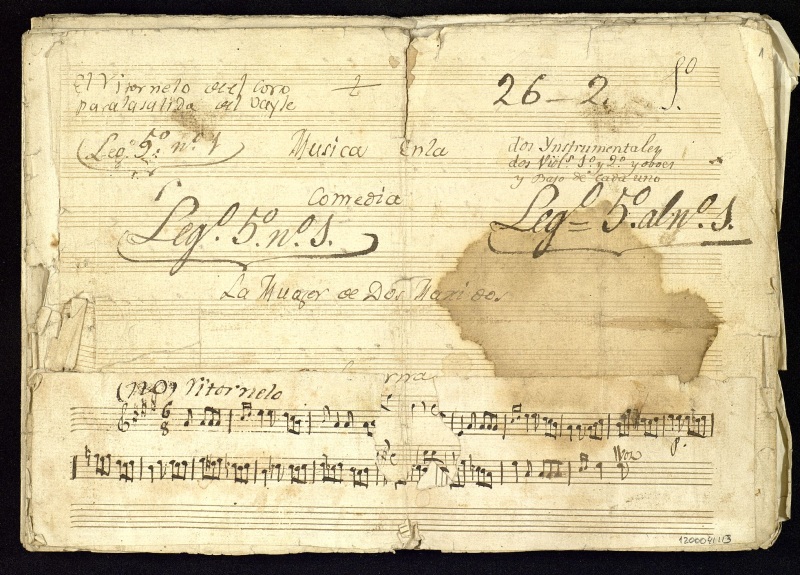 El Vitornelo del Coro
para la salida del Vayle
1/2
26-2.
1
Leg.º 5.º n.º 1
Musica Enla
dos Ynstrumentales
dos Viols. 1º y 2º y oboes
y Bajo de cada uno
Comedia
Leg.º 5.º n.º 1.
Leg.º 5.º al n.º 1.
La Muger de Dos Maridos
(no) Vitornelo
6
8
1200041113